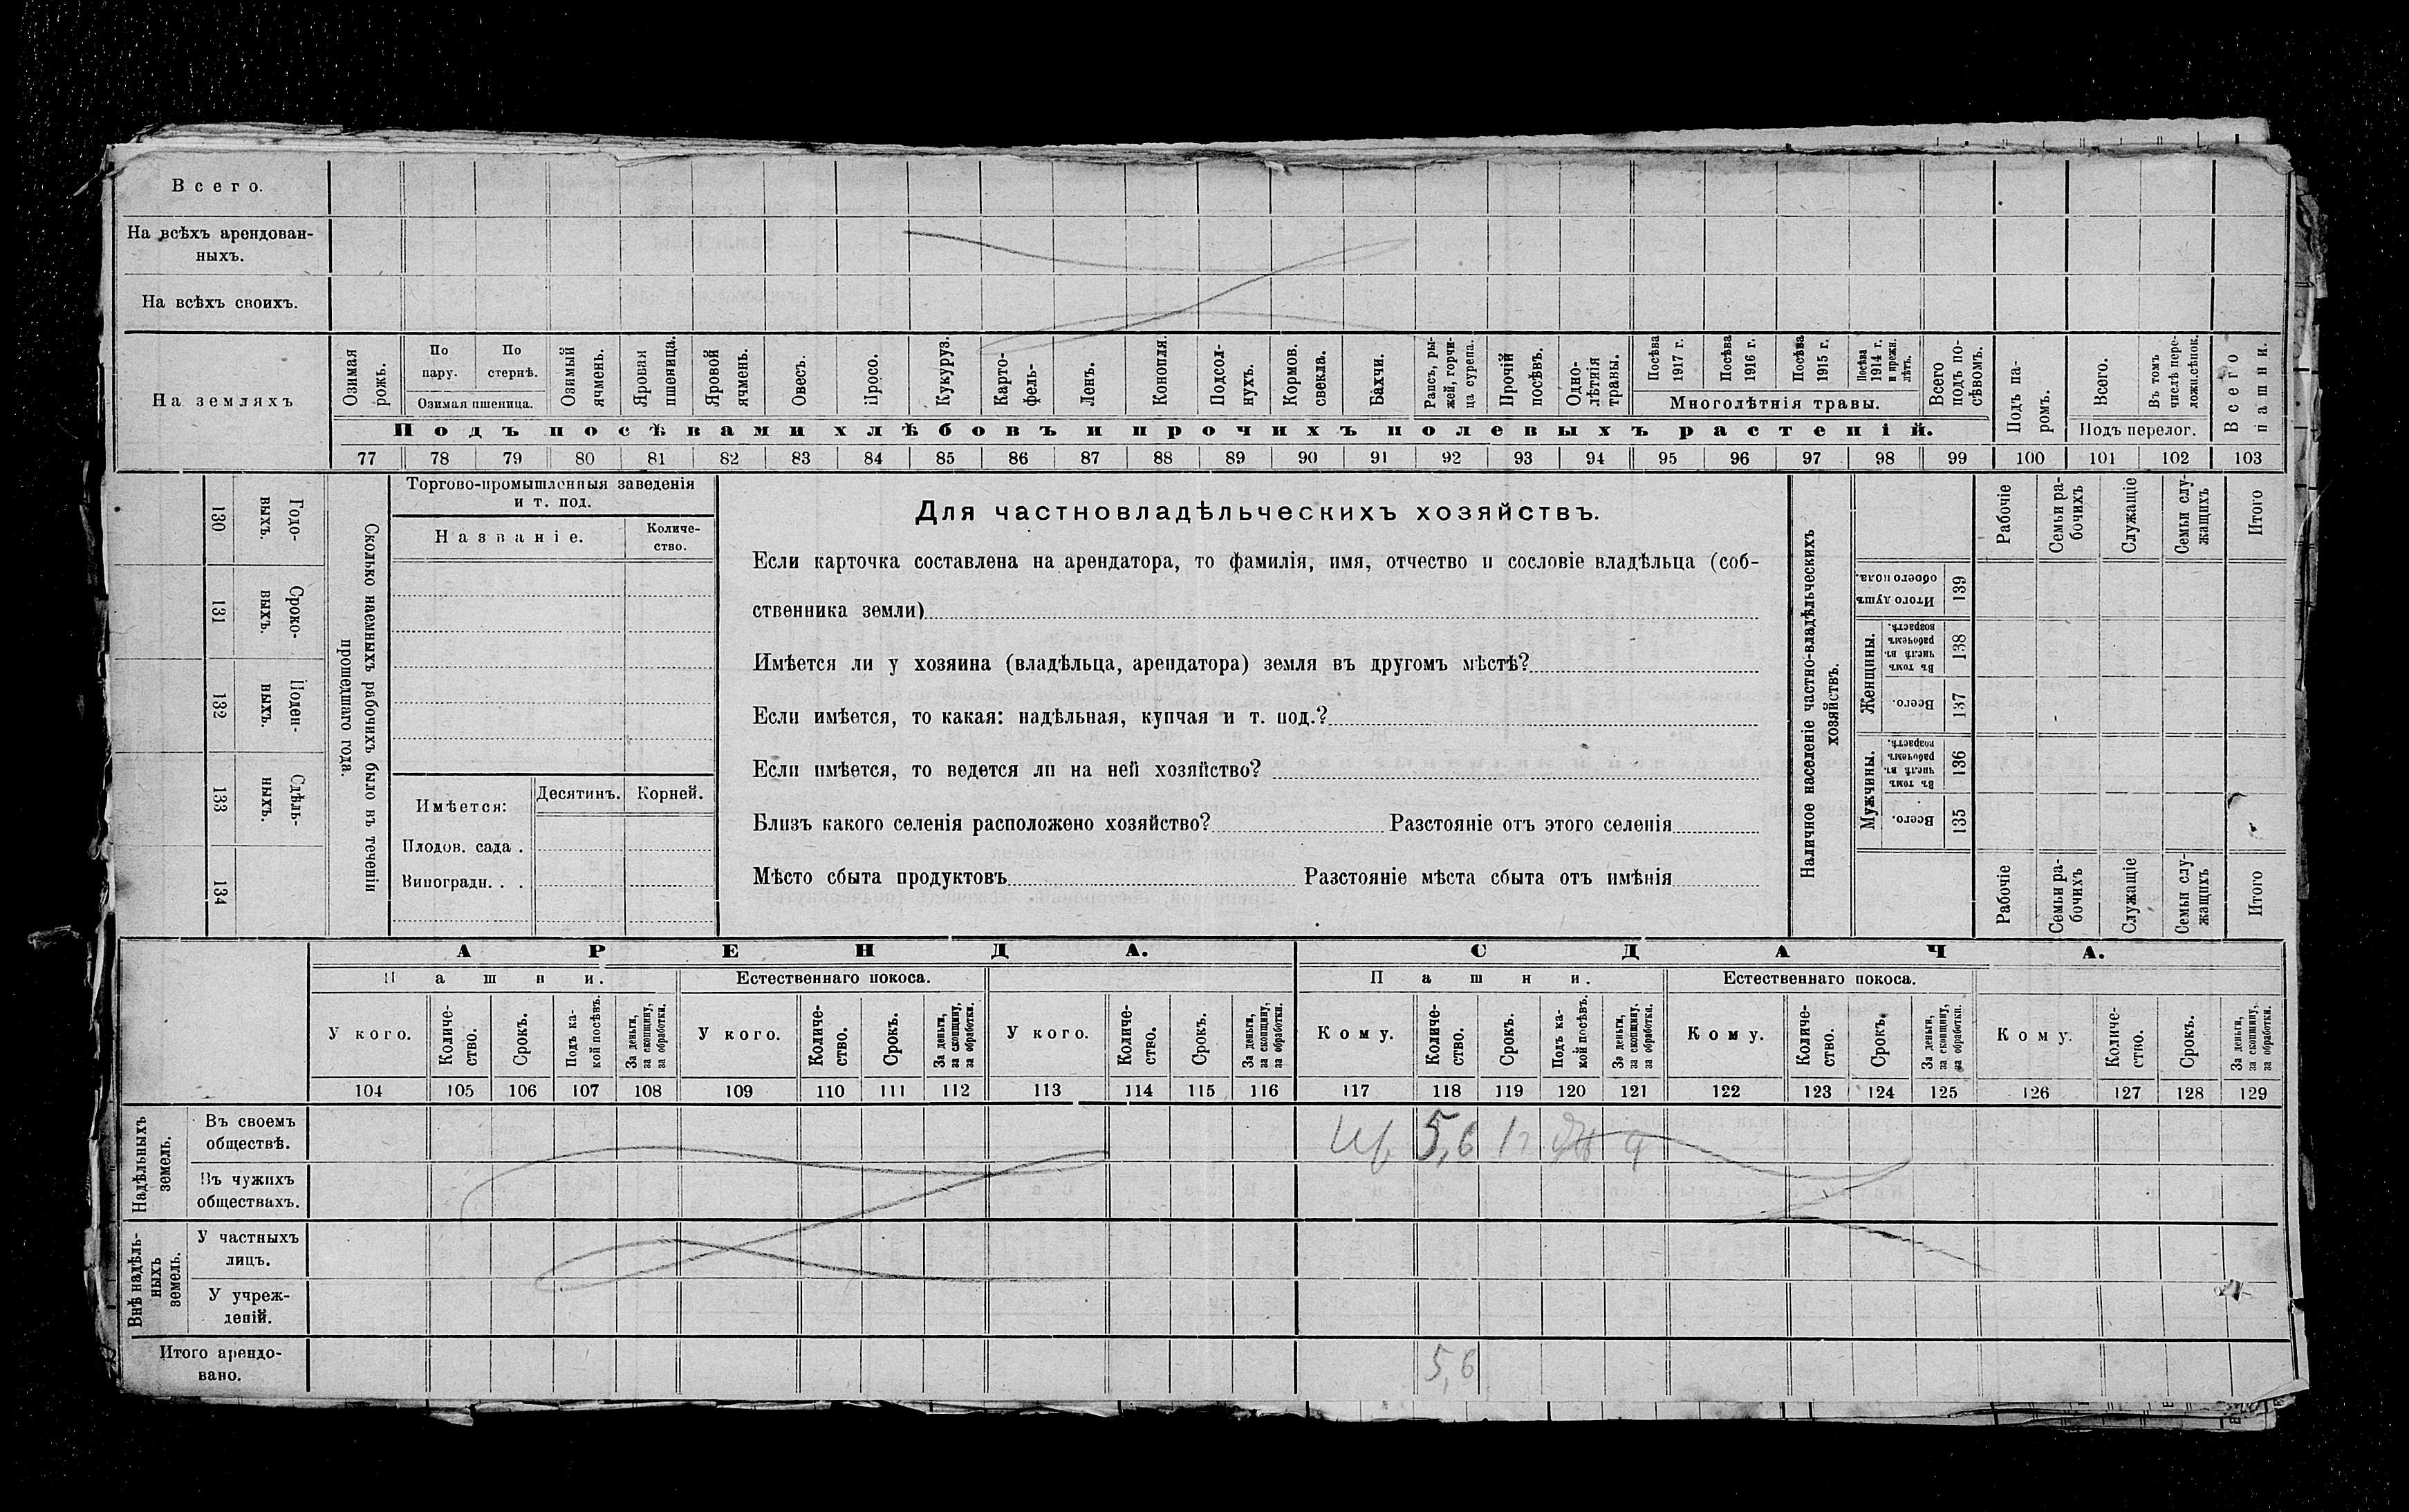 Всего.
На всѣхъ арендован-
ныхъ.
На всѣхъ своихъ.
На земляхъ
Озимая рожь.
По пару.
По стернѣ.
Озимая пшеница.
Озимый ячмень.
Яровая пшеница.
Яровой ячмень.
Овесъ.
Просо.
Кукуруз.
Карто-
фель-
Ленъ.
Конопля.
Подсол-
нухъ.
Кормов. свекла.
Бахчи.
Рапсъ, ры-
жей, горчи-
ца сурепа.
Прочій посѣвъ.
Одно-
лѣтнія травы.
Посѣва 1917 г.
Посѣва 1916 г.
Посѣва 1915 г.
Посѣва 1914 г. и прежн. лѣтъ.
Многолѣтнія травы.
Всего подъ по-
сѣвомъ.
Подъ па-
ромъ.
Всего.
Въ томъ числѣ пере-
ложн.сѣнок.
Подъ перелог.
Всего пашни.
Подъ посѣвами хлѣбовъ и прочихъ полевыхъ растеній.
77 78 79 80 81 82 83 84 85 86 87 88 89 90 91 92 93 94 95 96 97 98 99 100 101 102 103
130 Годо-
выхъ.
131 Сроко-
выхъ.
132 Поден-
ныхъ.
133 Сдѣль-
ныхъ.
134
Сколько наемныхъ рабочихъ было въ теченіи
прошедшаго года.
Торгово-промышленныя заведенія
и т. под.
Названіе.
Количе-
ство.
Имѣется:
Десятинъ.
Корней.
Плодов. сада .
Виноградн. . .
Для частновладѣльческихъ хозяйствъ.
Если карточка составлена на арендатора, то фамилія, имя, отчество и сословіе владѣльца (соб-
ственника земли)
Имѣется ли у хозяина (владѣльца, арендатора) земля въ другомъ мѣстѣ?
Если имѣется, то какая: надѣльная, купчая и т. под.?
Если имѣется, то ведется ли на ней хозяйство?
Близъ какого селенія расположено хозяйство? Разстояніе отъ этого селенія
Мѣсто сбыта продуктовъ Разстояніе мѣста сбыта отъ имѣнія
Наличное населеніе частно-владѣльческихъ
хозяйствъ.
Рабочіе
Семьи ра-
бочихъ
Служащіе
Семьи слу-
жащихъ
Итого
Итого душъ обоего пола. 139
Женщины.
Въ томъ числѣ въ рабочемъ возрастѣ. 138
Всего. 137
Мужчины.
Въ томъ числѣ въ рабочемъ возрастѣ. 136
Всего. 135
Рабочіе
Семьи ра-
бочихъ
Служащіе
Семьи слу-
жащихъ
Итого
АРЕНДА.
СДАЧА.
Пашни.
Естественнаго покоса.
Пашни.
Естественнаго покоса.
У кого.
Количе-
ство.
Срокъ.
Подъ ка-
кой посѣвъ.
За деньги, за скопщину, за обработки.
У кого.
Количе-
ство.
Срокъ.
За деньги, за скопщину, за обработки.
У кого.
Количе-
ство.
Срокъ.
За деньги, за скопщину, за обработки.
Кому.
Количе-
ство.
Срокъ.
Подъ ка-
кой посѣвъ.
За деньги, за скопщину, за обработки.
Кому.
Количе-
ство.
Срокъ.
За деньги, за скопщину, за обработки.
Кому.
Количе-
ство.
Срокъ.
За деньги, за скопщину, за обработки.
104 105 106 107 108 109 110 111 112 113 114 115 116 117 118 119 120 121 122 123 124 125 126 127 128 129
Надѣльныхъ земель.
Въ своемъ
обществѣ.
5,6
Въ чужихъ
обществахъ.
Внѣ надѣль-
ныхъ земель.
У частныхъ
лицъ.
У учреж-
деній.
Итого арендо-
вано.
5,6